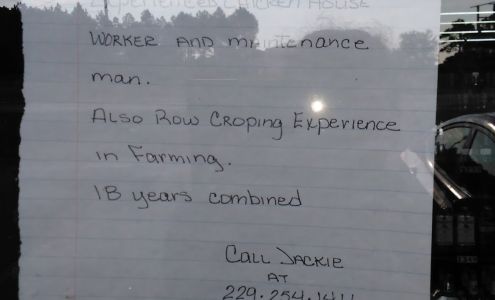 Experienced Chicken House
Worker and maintenance
man.
Also Row Croping Experience
in Farming.
18 years combined
Call Jackie
at